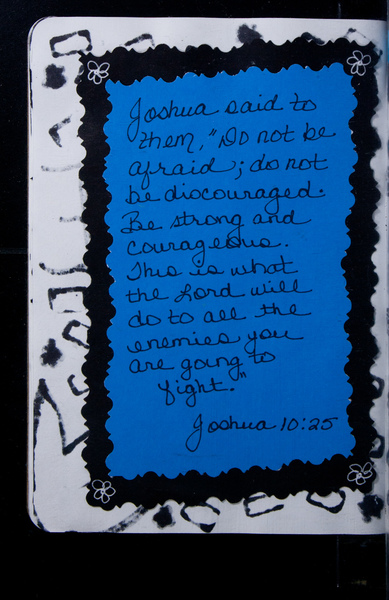 Joshua said to
them, "Do not be
afraid; do not
be discouraged.
Be strong and
courageous.
This is what
the Lord will
do to all the
enemies you
are going to
fight."
Joshua 10:25